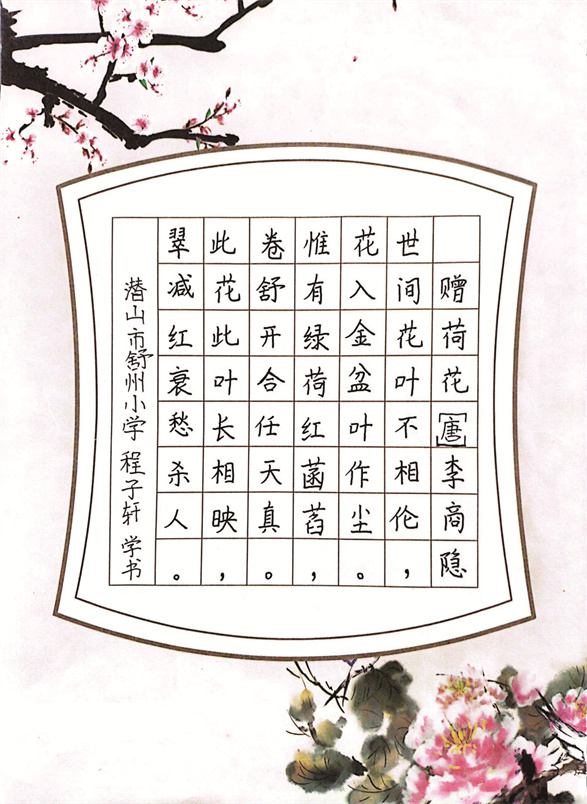 赠荷花[唐]李商隐
世间花叶不相伦，
花入金盆叶作尘。
惟有绿荷红菡萏，
卷舒开合任天真。
此花此叶长相映，
翠减红衰愁杀人。
潜山市舒州小学 程子轩 学书